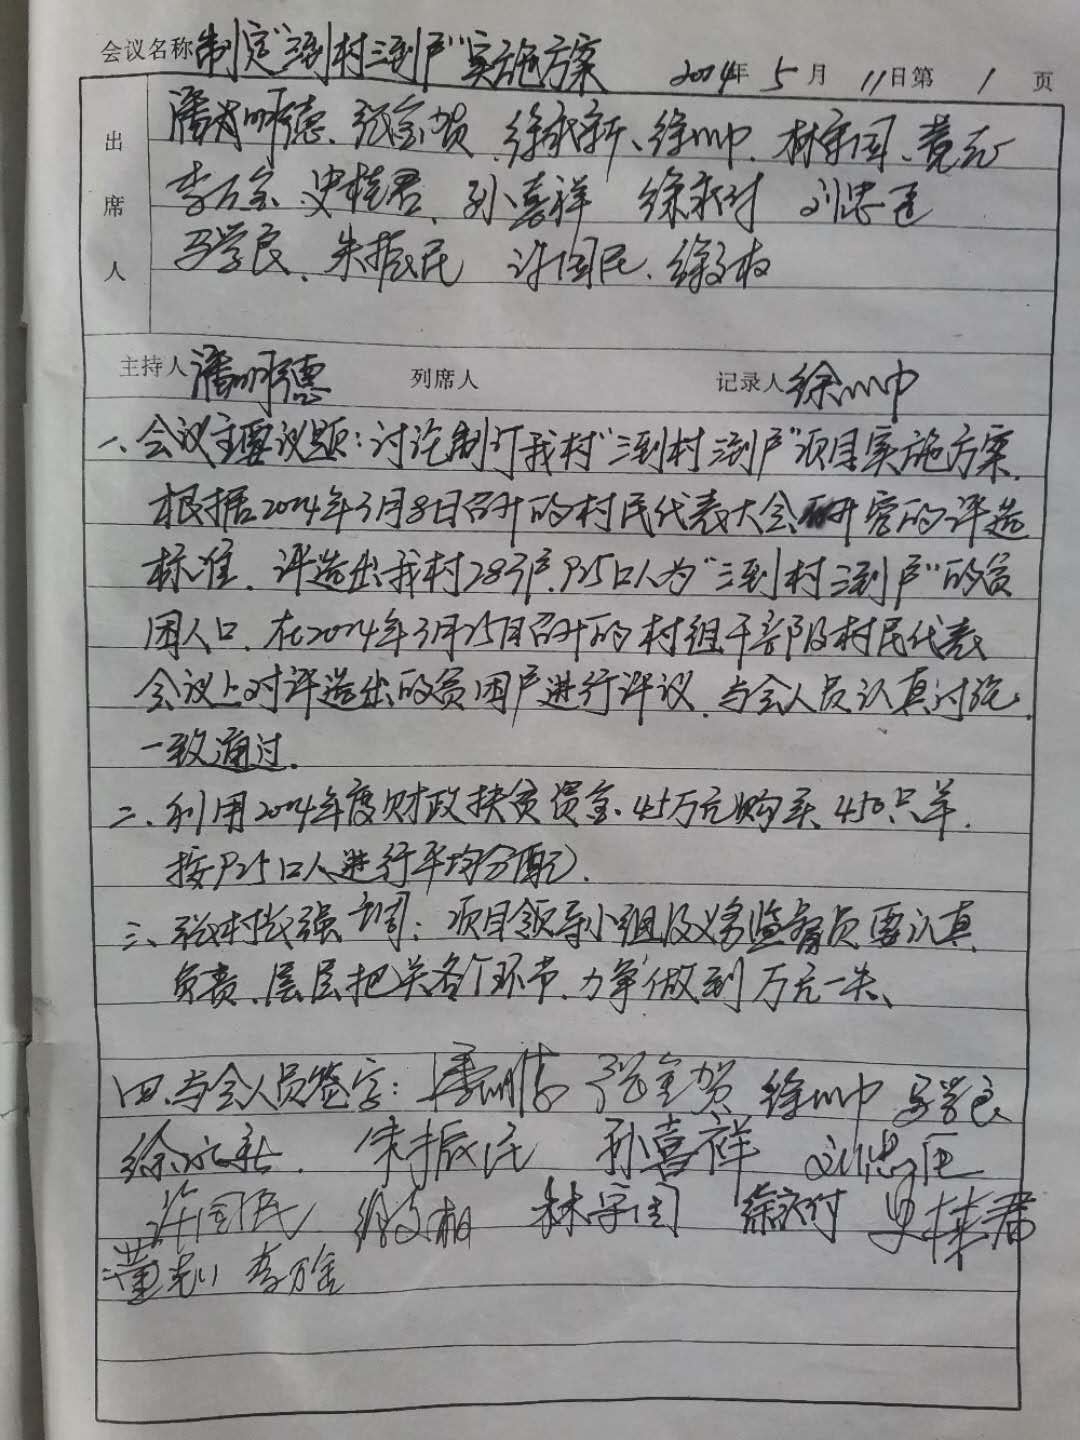 会议名称 制定"三到村三到户"实施方案 2014年 5月 11日第 1 页
出席人
潘明德、张金贺、徐永新、徐川中、林宗国、董
李万金、史桂君、孙喜祥 徐永付 刘忠臣
马学良、朱振民 许国民、徐文相
主持人 潘明德 列席人 记录人 徐川中
一、会议主要议题:讨论制订我村"三到村三到户"项目实施方案.
根据2014年3月8日召开的村民代表大会研究的评选
标准,评选出我村283户,925口人为"三到村三到户"的贫
困人口,在2014年3月25日召开的村组干部及村民代表
会议上对评选出的贫困户进行评议,与会人员认真讨论,
一致通过.
二、利用2014年度财政扶贫资金、45万元购买450只羊,
按925口人进行平均分配.
三、强调:项目领导小组及义务监督员要认真
负责、层层把关各个环节,力争做到万无一失、
四、与会人员签字:潘明德 张金贺 徐川中 马学良
徐永新 朱振民 孙喜祥 刘忠臣
许国民 徐文相 林宗国 徐永付 史桂君
董 李万金